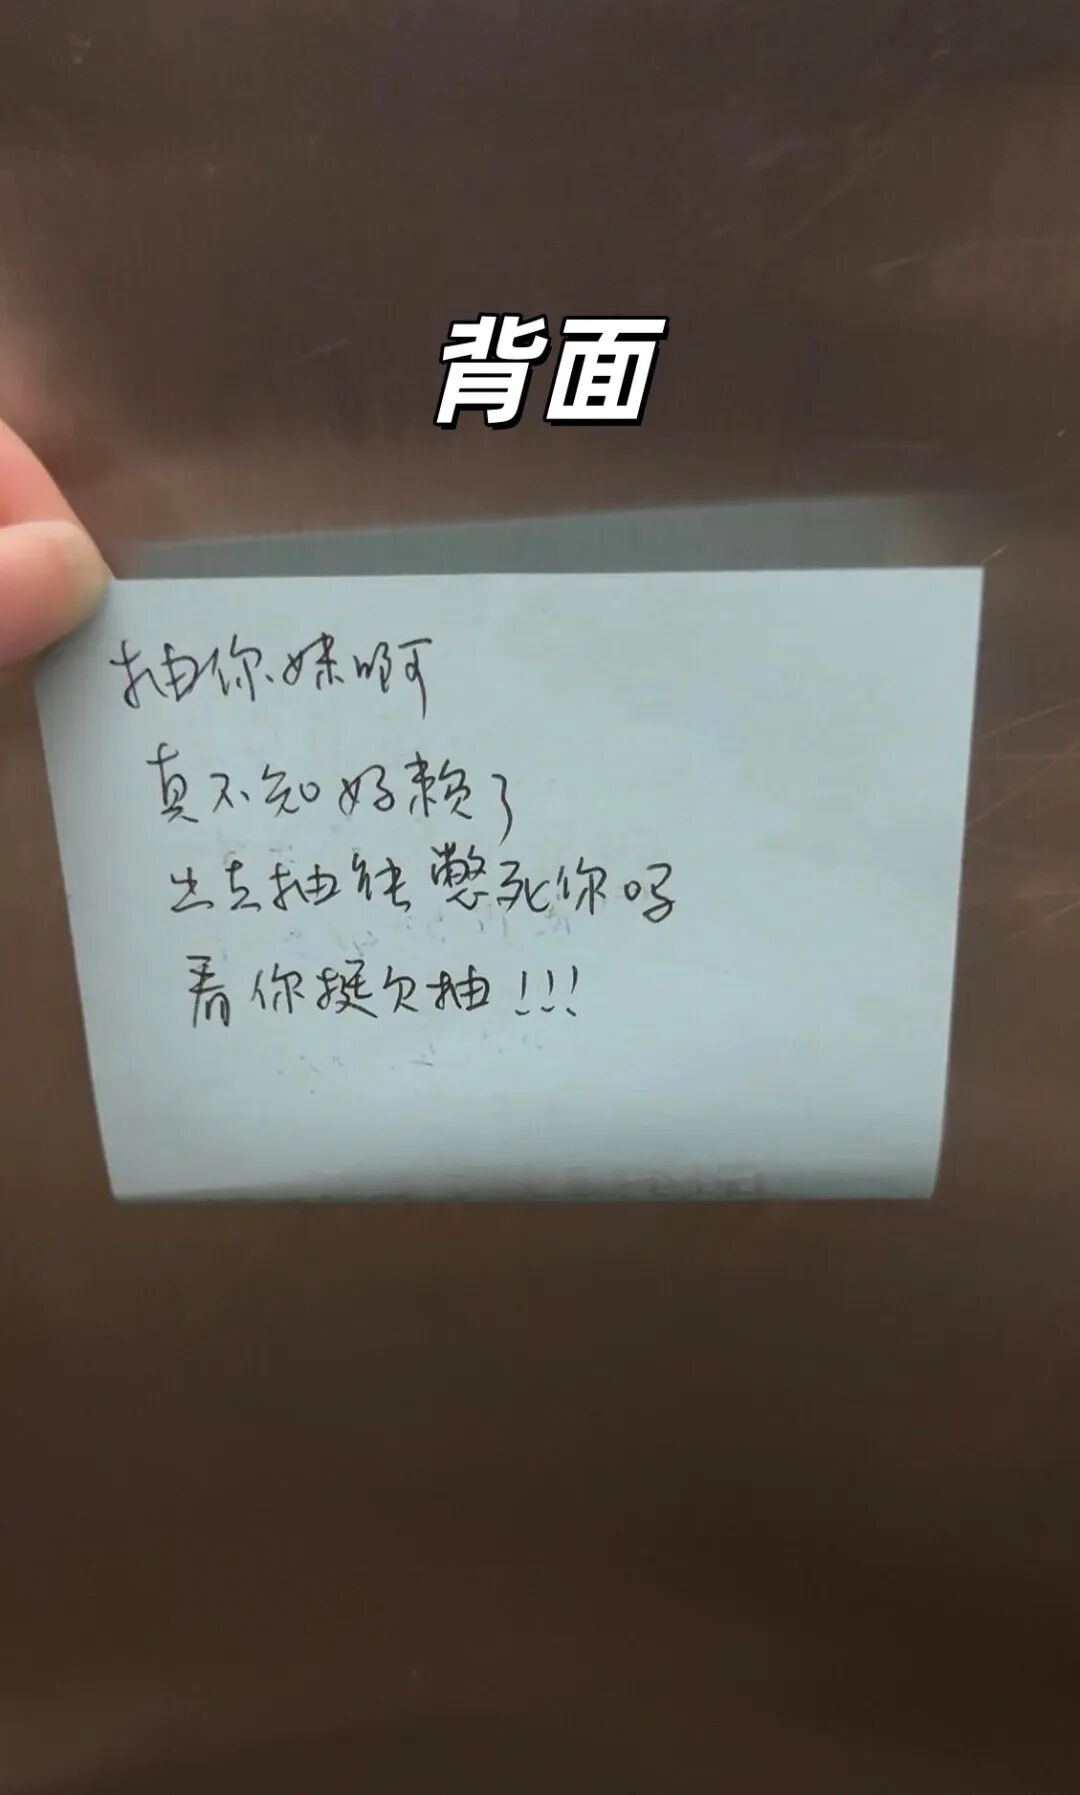 背面
抽你妹啊
真不知好赖了
出去抽能憋死你吗
看你挺欠抽!!!